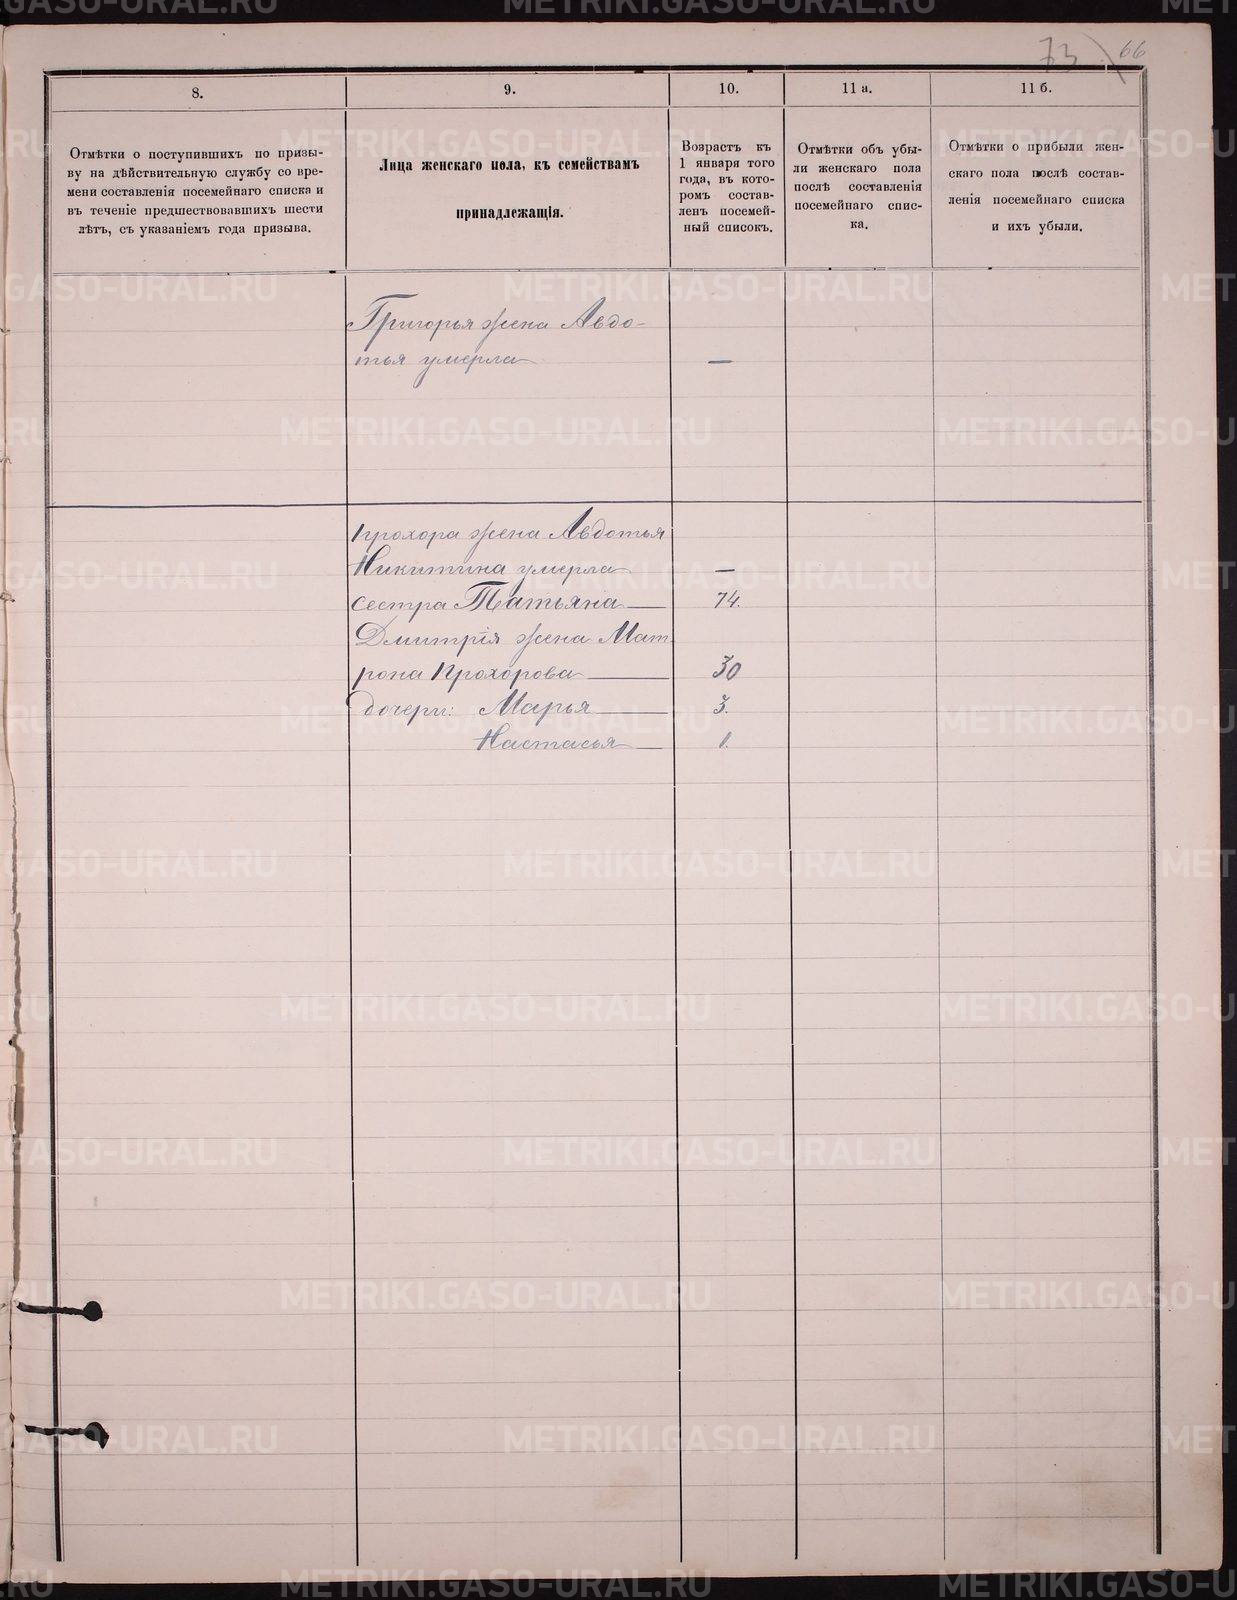 73 66
8.
9.
10.
11 а.
11 б.
Отмѣтки о поступившихъ по призы-
ву на дѣйствительную службу со вре-
мени составленія посемейнаго списка и
въ теченіе предшествовавшихъ шести
лѣтъ, съ указаніемъ года призыва.
Лица женскаго пола, къ семействамъ
принадлежащія.
Возрастъ къ
1 января того
года, въ кото-
ромъ состав-
ленъ посемей-
ный списокъ.
Отмѣтки объ убы-
ли женскаго пола
послѣ составленія
посемейнаго спис-
ка.
Отмѣтки о прибыли жен-
скаго пола послѣ состав-
ленія посемейнаго списка
и ихъ убыли.
Григорья жена Авдо-
тья умерла —
Прохора жена Авдотья
Никитина умерла —
сестра Татьяна — 74.
Дмитрія жена Мат
рона Прохорова — 30
дочери: Марья — 3.
Настасья — 1.
METRIKI.GASO-URAL.RU